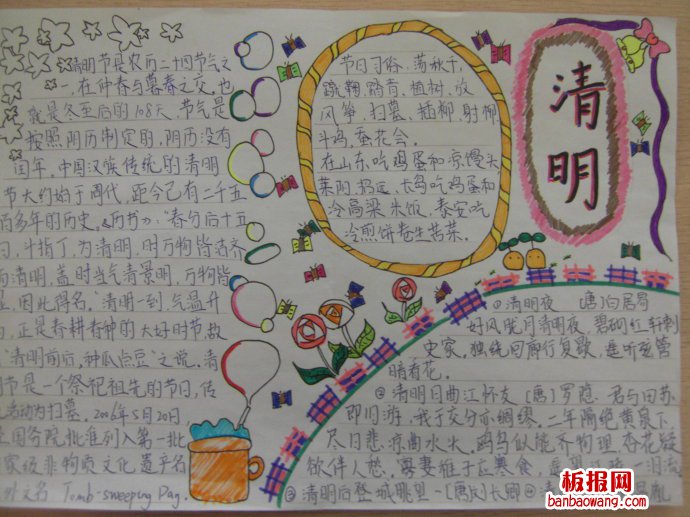 清明节是农历二十四节气之
一,在仲春与暮春之交,也
就是冬至后的108天,节气是
按照阳历制定的,阴历没有
国年,中国汉族传统的清明
节大约始于周代,距今已有二千五
百多年的历史。《历书》:"春分后十五
日,斗指丁,为清明,时万物皆洁齐
而清明,盖时当气清景明,万物皆
显,因此得名。"清明一到,气温升
高,正是春耕春种的大好时节,故
"清明前后,种瓜点豆"之说。清
明节是一个祭祀祖先的节日,传
统活动为扫墓。2006年5月20日
国务院批准列入第一批
国家级非物质文化遗产名
外文名 Tomb-sweeping Day.
节日习俗:荡秋千,
蹴鞠,踏青,植树,放
风筝,扫墓,插柳,射柳
斗鸡,蚕花会。
在山东,吃鸡蛋和凉馒头,
莱阳,招远,长岛吃鸡蛋和
冷高粱米饭,泰安吃
冷煎饼卷生苦菜。
清明
①清明夜 (唐)白居易
好风胧月清明夜,碧砌红轩刺
史家。独绕回廊行复歇,遥听弦管
暗看花。
②清明日曲江怀友 (唐)罗隐 君与田苏
即旧游,我于交分亦绸缪。二年隔绝黄泉下,
尽日悲凉曲水头。鸥鸟似能齐物理,杏花疑
欲伴人愁。寡妻稚子应寒食,
③清明后登城眺望-(唐)刘长卿
板报网
banbaowang.com